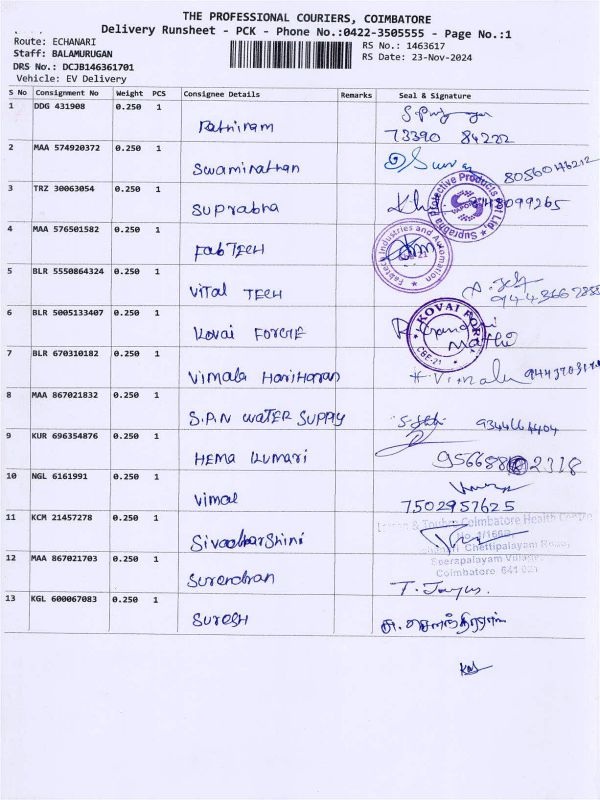 THE PROFESSIONAL COURIERS, COIMBATORE
Delivery Runsheet - PCK - Phone No.:0422-3505555 - Page No.:1
Route: ECHANARI
RS No.: 1463617
Staff: BALAMURUGAN
RS Date: 23-Nov-2024
DRS No.: DCJB146361701
Vehicle: EV Delivery
S No Consignment No Weight PCS Consignee Details Remarks Seal & Signature
1 DDG 431908 0.250 1
Ratniram
73390 84222
2 MAA 574920372 0.250 1
Swaminathan
8056046212
3 TRZ 30063054 0.250 1
Suprabha
Suprabha Protective Products Pvt Ltd.
4 MAA 576501582 0.250 1
FabTECH
Fabtech Industries and Automation
5 BLR 5550864324 0.250 1
VITAL TECH
6 BLR 5005133407 0.250 1
Kovai FORGE
KOVAI FORGE
CBE-21
7 BLR 670310182 0.250 1
Vimala Hariharan
H. Vimala
8 MAA 867021832 0.250 1
S.P.N WATER SUPPLY
9344664404
9 KUR 696354876 0.250 1
HEMA KUMARI
2318
10 NGL 6161991 0.250 1
Vimal
7502957625
11 KCM 21457278 0.250 1
Sivadharshini
Larsen & Toubro Coimbatore Health Centre
Chettipalayam Road,
Seerapalayam Village,
Coimbatore 641 021
12 MAA 867021703 0.250 1
Surendran
13 KGL 600067083 0.250 1
SURESH